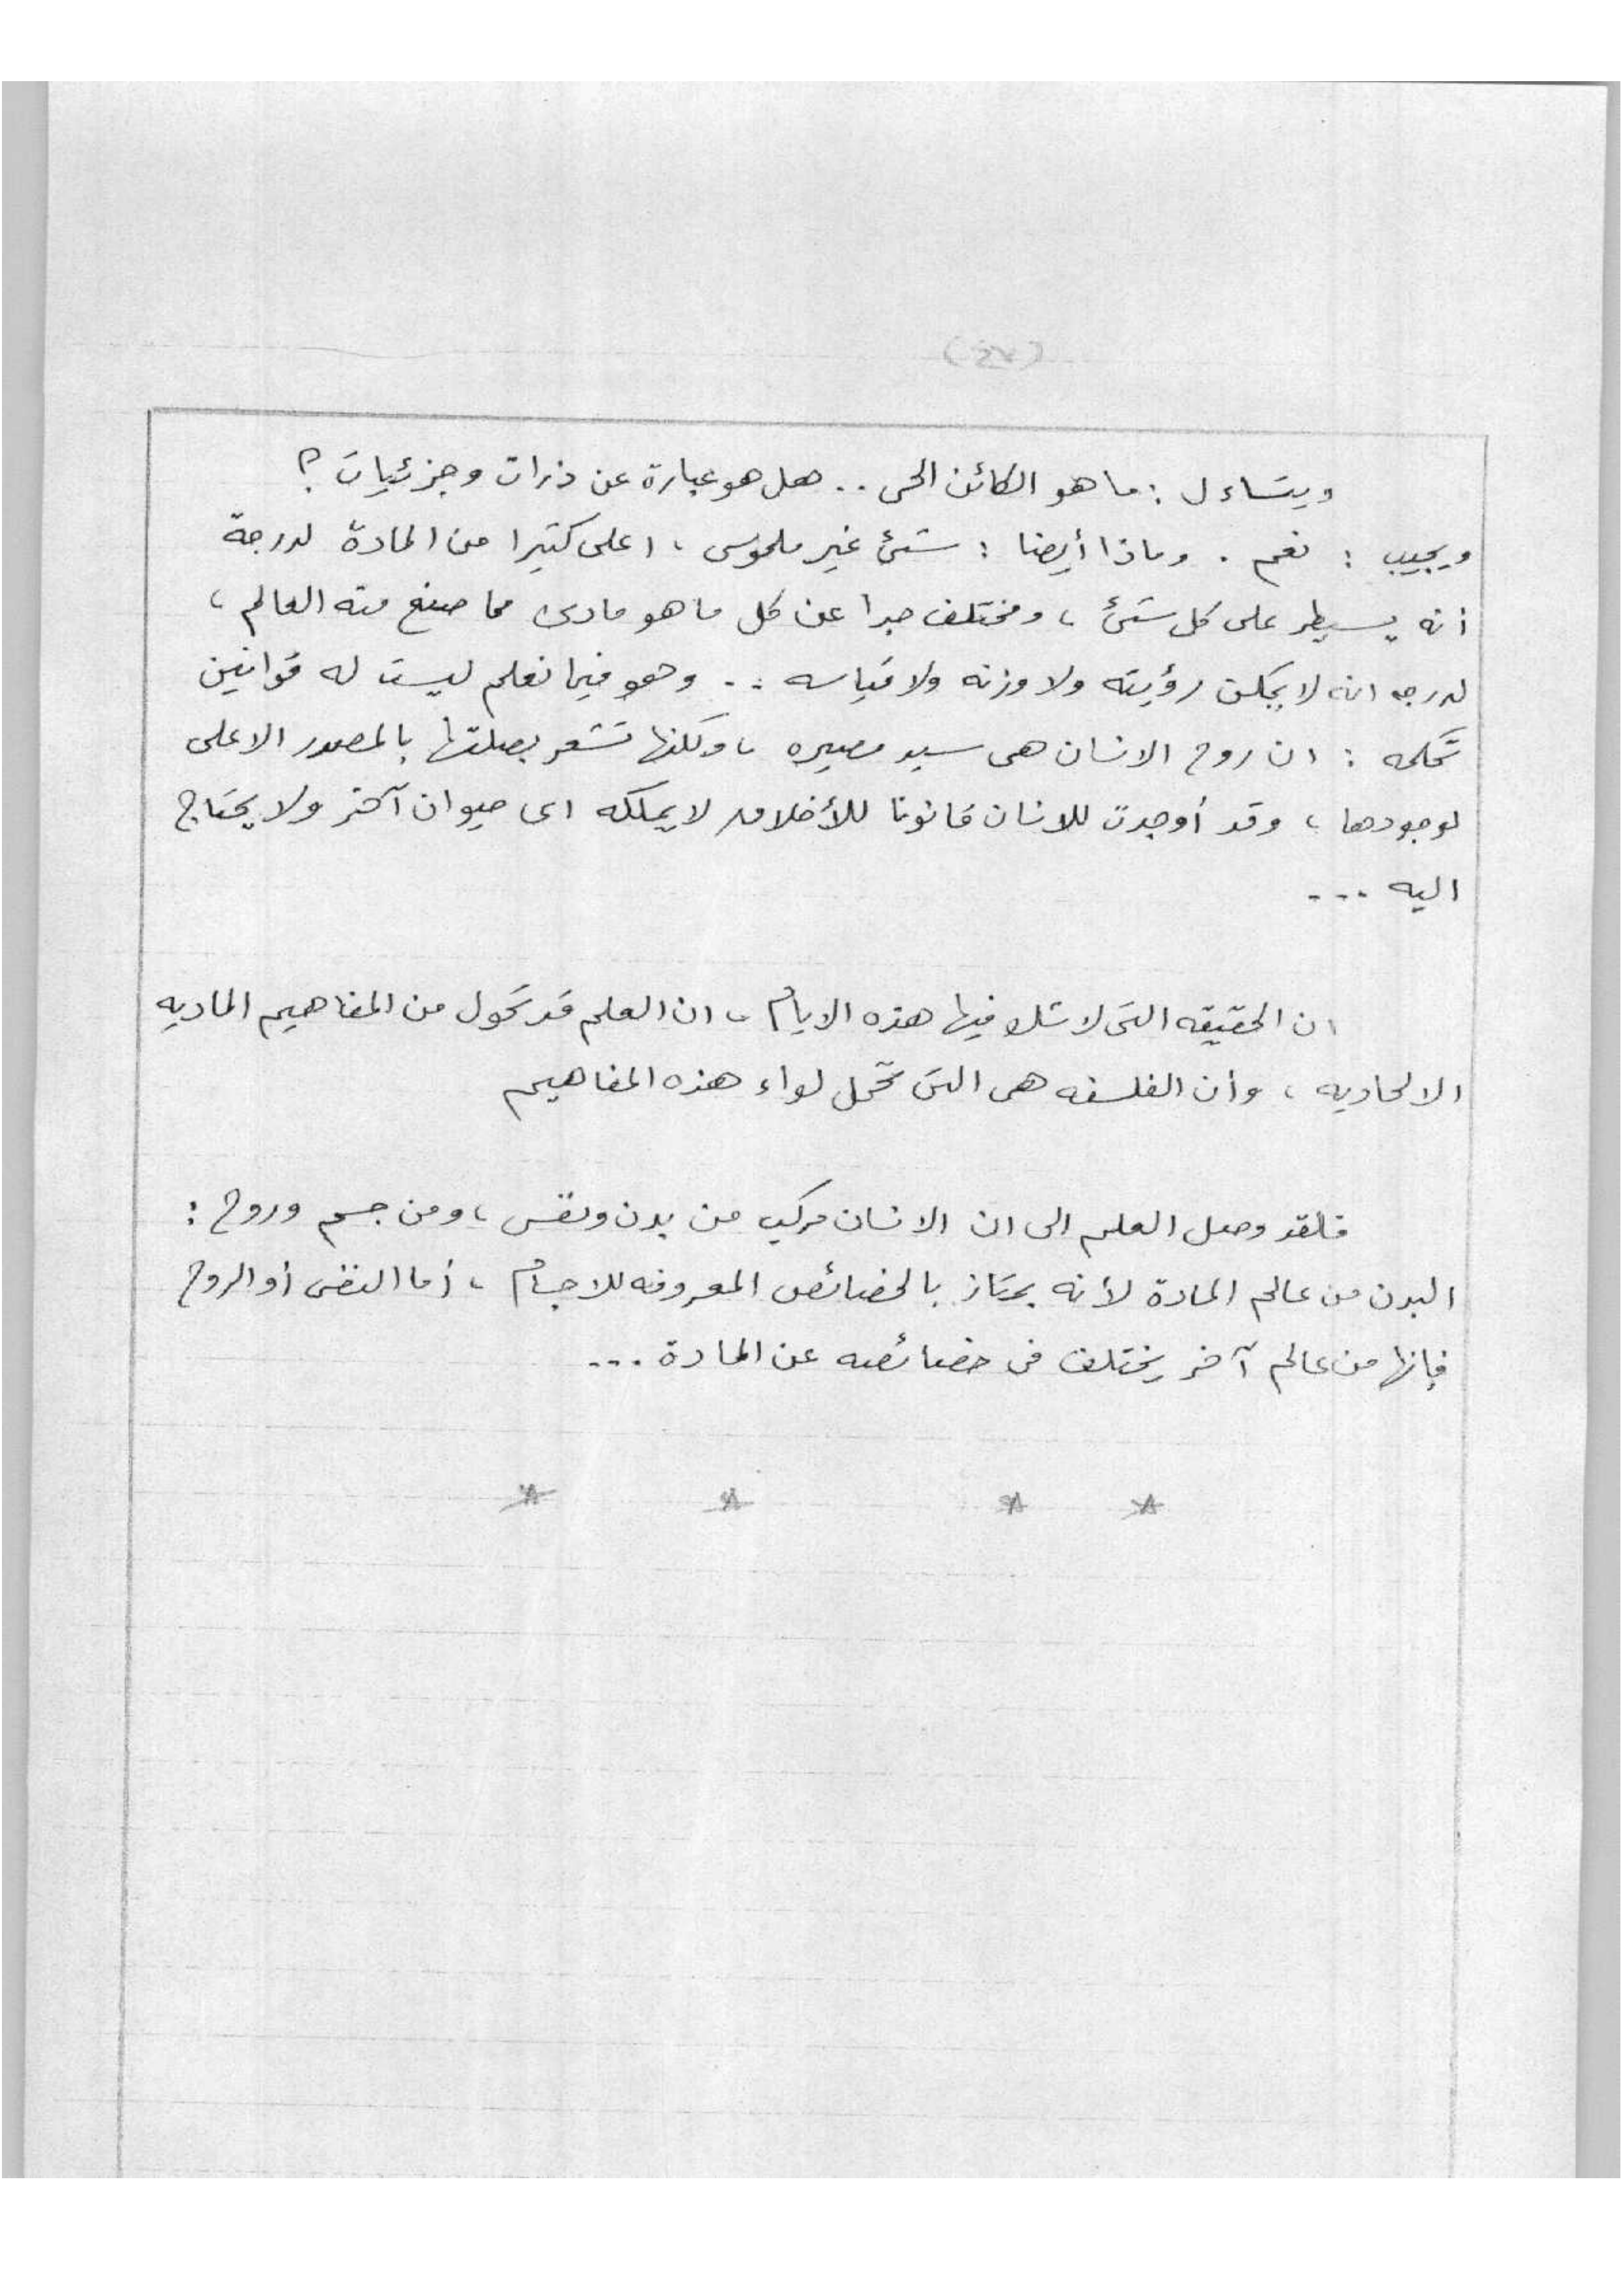 ويتساءل : ما هو الكائن الحى .. هل هو عبارة عن ذرات وجزئيات ؟
ويجيب : نعم . وماذا أيضا : شئ غير ملموس ، اعلى كثيرا من المادة لدرجة
أنه يسيطر على كل شئ ، ومختلف جدا عن كل ما هو مادى مما صنع منه العالم ،
لدرجه انه لا يمكن رؤيته ولا وزنه ولا قياسه .. وهو فيما نعلم ليست له قوانين
تحكمه : ان روح الانسان هى سيد مصيره ، ولكنها تشعر بصلتها بالمصدر الاعلى
لوجودها ، وقد أوجدت للانسان قانونا للأخلاق لا يملكه اى حيوان آخر ولا يحتاج
اليه ...
ان الحقيقه التى لا شك فيها هذه الايام ، ان العلم قد تحول من المفاهيم الماديه
الالحاديه ، وأن الفلسفه هى التى تحمل لواء هذه المفاهيم
فلقد وصل العلم الى ان الانسان مركب من بدن ونفس ، ومن جسم وروح :
البدن من عالم المادة لأنه يمتاز بالخصائص المعروفه للاجسام ، أما النفس أو الروح
فإنها من عالم آخر يختلف فى خصائصه عن المادة ...